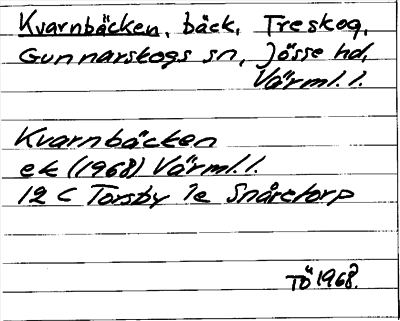 Kvarnbäcken, bäck, Treskog,
Gunnarskogs sn, Jösse hd,
Värml. l.
Kvarnbäcken
ek (1968) Värml. l.
12 C Torsby 7e Snåretorp
TÖ 1968.